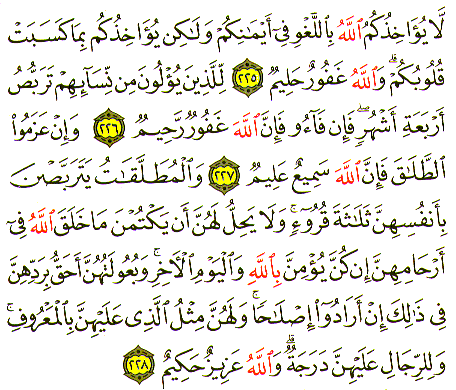 لَّا يُؤَاخِذُكُمُ ٱللَّهُ بِٱللَّغْوِ فِىٓ أَيْمَـٰنِكُمْ وَلَـٰكِن يُؤَاخِذُكُم بِمَا كَسَبَتْ
قُلُوبُكُمْ ۗ وَٱللَّهُ غَفُورٌ حَلِيمٌ ٢٢٥ لِّلَّذِينَ يُؤْلُونَ مِن نِّسَآئِهِمْ تَرَبُّصُ
أَرْبَعَةِ أَشْهُرٍ ۖ فَإِن فَآءُو فَإِنَّ ٱللَّهَ غَفُورٌ رَّحِيمٌ ٢٢٦ وَإِنْ عَزَمُوا۟
ٱلطَّلَـٰقَ فَإِنَّ ٱللَّهَ سَمِيعٌ عَلِيمٌ ٢٢٧ وَٱلْمُطَلَّقَـٰتُ يَتَرَبَّصْنَ
بِأَنفُسِهِنَّ ثَلَـٰثَةَ قُرُوٓءٍ ۚ وَلَا يَحِلُّ لَهُنَّ أَن يَكْتُمْنَ مَا خَلَقَ ٱللَّهُ فِىٓ
أَرْحَامِهِنَّ إِن كُنَّ يُؤْمِنَّ بِٱللَّهِ وَٱلْيَوْمِ ٱلْـَٔاخِرِ ۚ وَبُعُولَتُهُنَّ أَحَقُّ بِرَدِّهِنَّ
فِى ذَٰلِكَ إِنْ أَرَادُوٓا۟ إِصْلَـٰحًا ۚ وَلَهُنَّ مِثْلُ ٱلَّذِى عَلَيْهِنَّ بِٱلْمَعْرُوفِ ۚ
وَلِلرِّجَالِ عَلَيْهِنَّ دَرَجَةٌ ۗ وَٱللَّهُ عَزِيزٌ حَكِيمٌ ٢٢٨